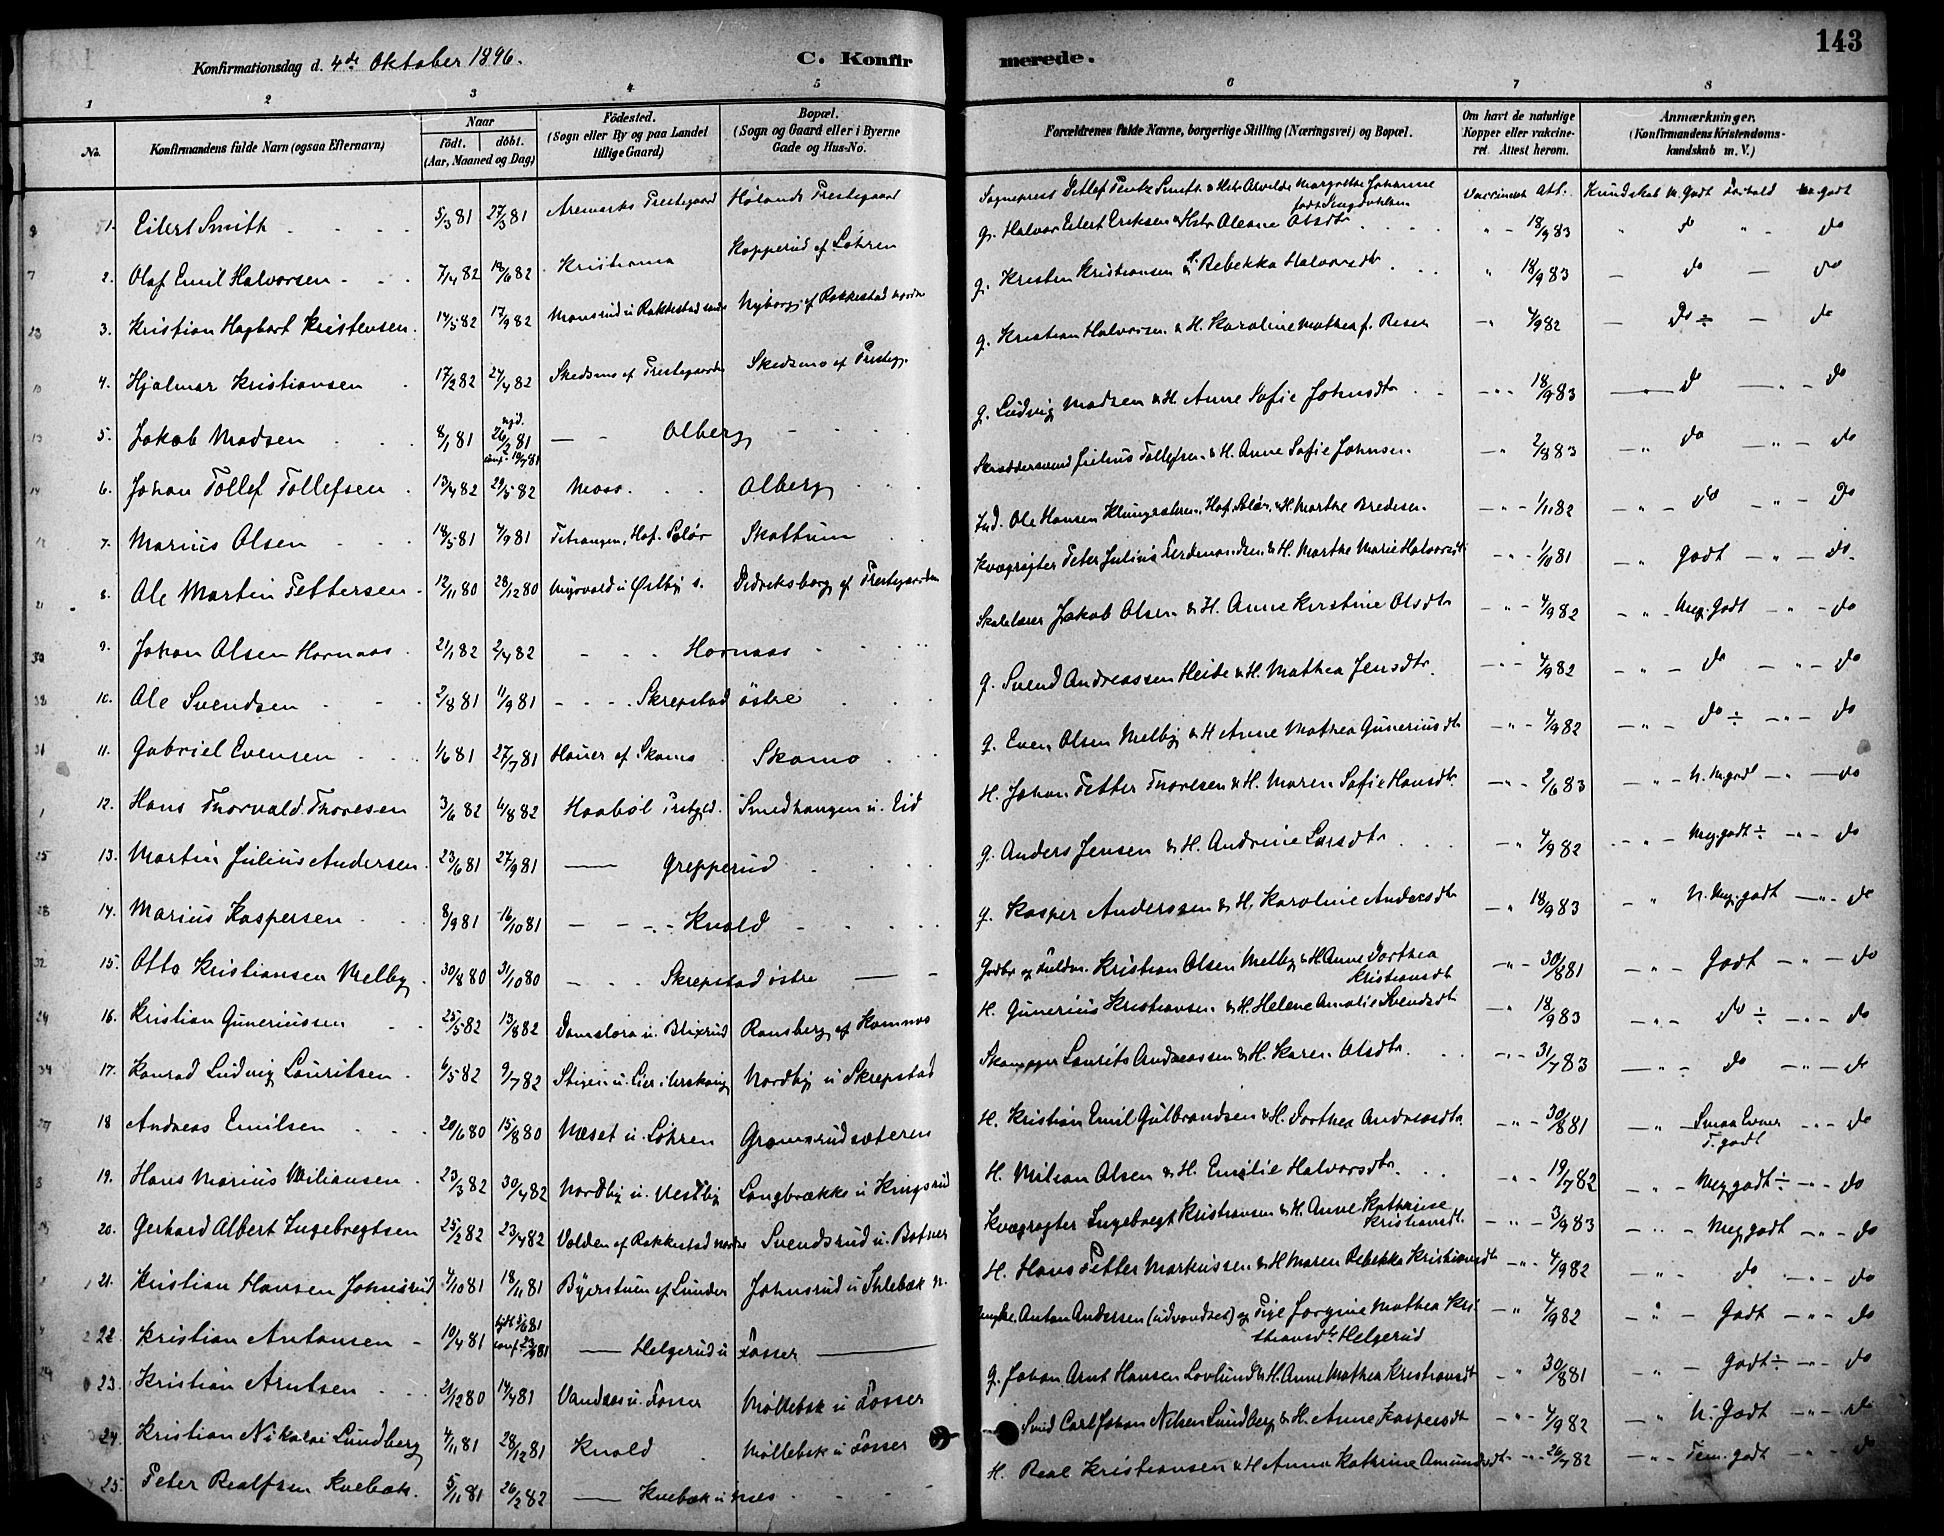 143
Konfirmationsdag d. 4de Oktober 1896. C. Konfirmerede.
1 2 3 4 5 6 7 8
No. Konfirmandens fulde Navn (ogsaa Efternavn) Naar født. døbt. (Aar, Maaned og Dag) Fødested. (Sogn eller By og paa Landet tillige Gaard) Bopæl. (Sogn og Gaard eller i Byerne Gade og Hus-No. Forældrenes fulde Navne, borgerlige Stilling (Næringsvei) og Bopæl. Om havt de naturlige Kopper eller vakcineret. Attest herom. Anmærkninger. (Konfirmandens Kristendomskundskab m. V.)
1. Eilert Smith 5/3 81 27/3 81 Aremarks Prestegaard Hølands Prestegaard Sogneprest Detlef Smith & Hstr Alvilde Margrethe Johanne Vaccineret Att. Kundskab M. Godt Forhold M. godt
2. Olaf Emil Halvorsen 7/4 82 18/6 82 Kristiania Kopperud af Løhren g. Halvor Eilert Eriksen & Hstr Oleane Olsdtr 18/9 83 do do
3. Kristian Hagbart Kristensen 14/5 82 17/9 82 Monsrud u Rakkestad Nyborg af Rakkestad nordre g. Kristen Kristiansen & Rebekka Halvorsdtr 18/9 83 do do
4. Hjalmar Kristiansen 17/2 82 27/4 82 Skedsmo af Prestegaarden Skedsmo af Presteg. g. Kristian Halvorsen & H. Karoline Mathea 4/9 82 do ÷ do
5. Jakob Madsen 8/1 81 26/2 81 Olberg g. Ludvig Madsen & H. Anne Sofie Johnsdtr 18/9 83 do do
6. Johan Tollef Tollefsen 13/4 82 29/5 82 Moss Olberg Skreddersvend Julius Tollefsen & H. Anne Sofie Johnsen 2/8 83 do do
7. Marius Olsen 18/5 81 4/9 81 Hof. Solør Skattum Ind. Ole Hansen Hof. Solør & H. Marthe Bredesen 1/11 82 do do
8. Ole Martin Pettersen 12/11 80 28/12 80 Myrvold u Ørtbij s. Didriksborg af Prestegaarden Kvægrøgter Peter Julius Ferdinandsen & H. Marthe Marie Halvorsdtr 1/10 81 Godt do
9. Johan Olsen Hornaas 21/1 82 2/4 82 Hornaas Skolelærer Jakob Olsen & H. Anne Kirstine Olsdtr 4/9 82 Meg. Godt do
10. Ole Svendsen 2/8 81 11/9 81 Skrepstad østre g. Svend Andreassen Heide & H. Mathea Jensdtr. 4/9 82 do do
11. Gabriel Evensen 1/6 81 27/7 81 Hauer af Skamo Skamo g. Even Olsen Melby & H Anne Mathea Guneriusdtr 4/9 82 do ÷ do
12. Hans Thorvald Thoresen 3/6 82 6/8 82 Haabøl Prstgld. Smedhaugen u. Eid H. Johan Petter Thoresen & H. Maren Sofie Hansdtr. 2/6 83 N. M. godt do
13. Martin Julius Andersen 23/6 81 27/9 81 Grepperud g. Anders Jensen & H. Andrine Larsdtr 4/9 82 Meg. godt ÷ do
14. Marius Kaspersen 8/9 81 16/10 81 Knold g. Kasper Anderssen & H. Karoline Andersdtr 18/9 83 N. Meg. godt do
15. Otto Kristiansen Melby 30/8 80 31/10 80 Skrepstad østre Gadbr og Kristian Olsen Melby & H Anne Dorthea Kristiansdtr 30/8 81 Godt do
16. Kristian Guneriussen 25/5 82 13/8 82 Damslora u. Blixrud Ransberg af Komnæs H. Gunerius Kristiansen & H. Helene Amalie Svendsdtr 18/9 83 do ÷ do
17. Konrad Ludvig Lauritsen 6/5 82 9/7 82 Stigen u. Lier i Urskoug Nordby u Skrepstad Skomager Laurits Andreassen & H. Karen Olsdtr. 31/7 83 do do
18 Andreas Emilsen 20/6 80 15/8 80 Næset u. Løhren Gromsrudsæteren H. Kristian Emil Gulbrandsen & H. Dorthea Andreasdtr. 30/8 81 Smaa Evner T. godt do
19. Hans Marius Miliansen 23/3 82 30/4 82 Nordby u. Vestby Langbrække u Kingsrud H. Milian Olsen & H. Emilie Halvorsdtr. 19/7 82 Meg. godt ÷ do
20. Gerhard Albert Ingebregtsen 25/2 82 23/4 82 Volden af Rakkestad nordre Svendsrud u. Botner Kvægrøgter Ingebregt Kristiansen & H. Anne Kathrine Kristiansdt. 3/9 83 Meg. godt do
21. Kristian Hansen Johnsrud 4/10 81 18/11 81 Byerstuen af Lunder Johnsrud u Ihlebæk n. H. Hans Petter Markussen & H Maren Rebekka Kristiansdt 4/9 82 do do
22. Kristian Antonsen 10/4 81 Helgerud u Fosser Ungkr. Anton Andersen (udvandret) og Pige Jørgine Mathea Kristiansdtr Helgerud 4/9 82 Godt do
23. Kristian Arntsen 21/12 80 14/4 81 Vandaas u. Fosser Møllebæk u Fosser g. Johan Arnt Hansen Lovlund & H. Anne Mathea Kristiansdt 30/8 81 Godt ÷ do
24. Kristian Nikolai Lundberg 4/11 81 28/12 81 Knold Møllebæk u Fosser Smed Carl Johan Nilsen Lundberg & H. Anne Kaspersdt 4/9 82 N. Godt do
25. Peter Realfsen Kvebæk. 5/11 81 26/2 82 Kvebæk u Næs H. Real Kristiansen & H Anna Kathrine Amundsdt 26/7 82 Tem. godt do